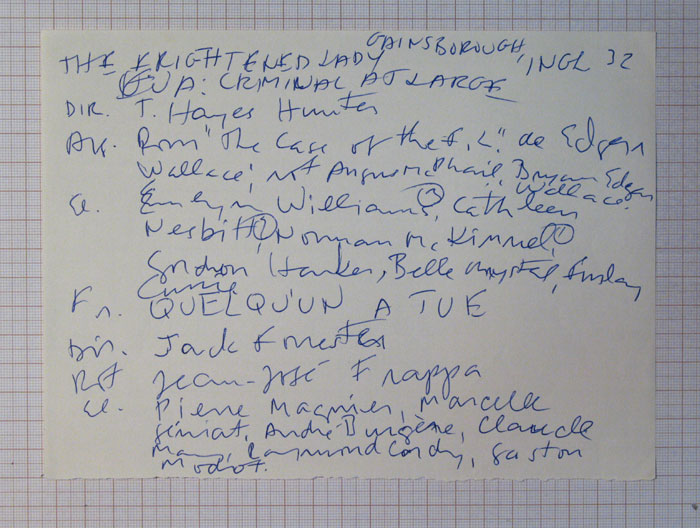 THE FRIGHTENED LADY GAINSBOROUGH, INGL 32
EUA: CRIMINAL AT LARGE
DIR. T. Hayes Hunter
Arg. Rom "The Case of the F. L." de Edgar
Wallace; rot Angus McPhail, Bryan Edgar
Wallace.
Emlyn Williams, Cathleen
Nesbitt, Norman McKinnel,
Gordon Harker, Belle Chrystal, Finlay
Currie
Fr. QUELQU'UN A TUÉ
Dir. Jack Forrester
Rot Jean-José Frappa
Pierre Magnier, Marcelle
Géniat, André Burgère, Claude
May, Raymond Cordy, Gaston
Modot.